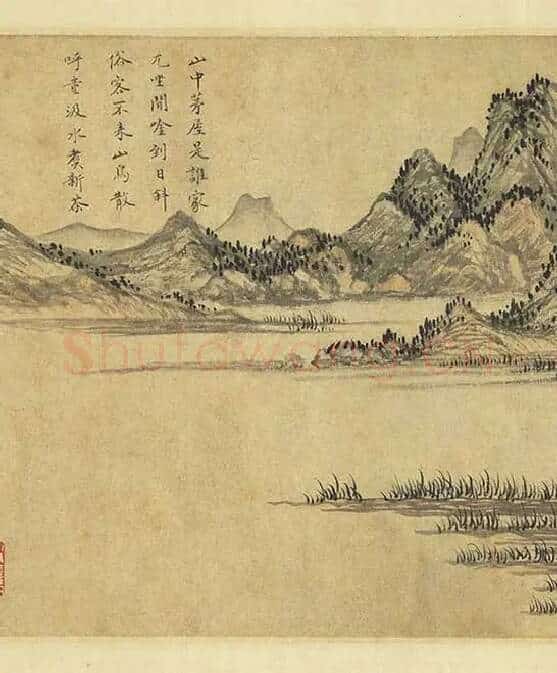 山中茅屋是誰家
兀坐閒唫到日斜
俗客不来山鳥散
呼童汲水煑新茶
Shufawang.cn